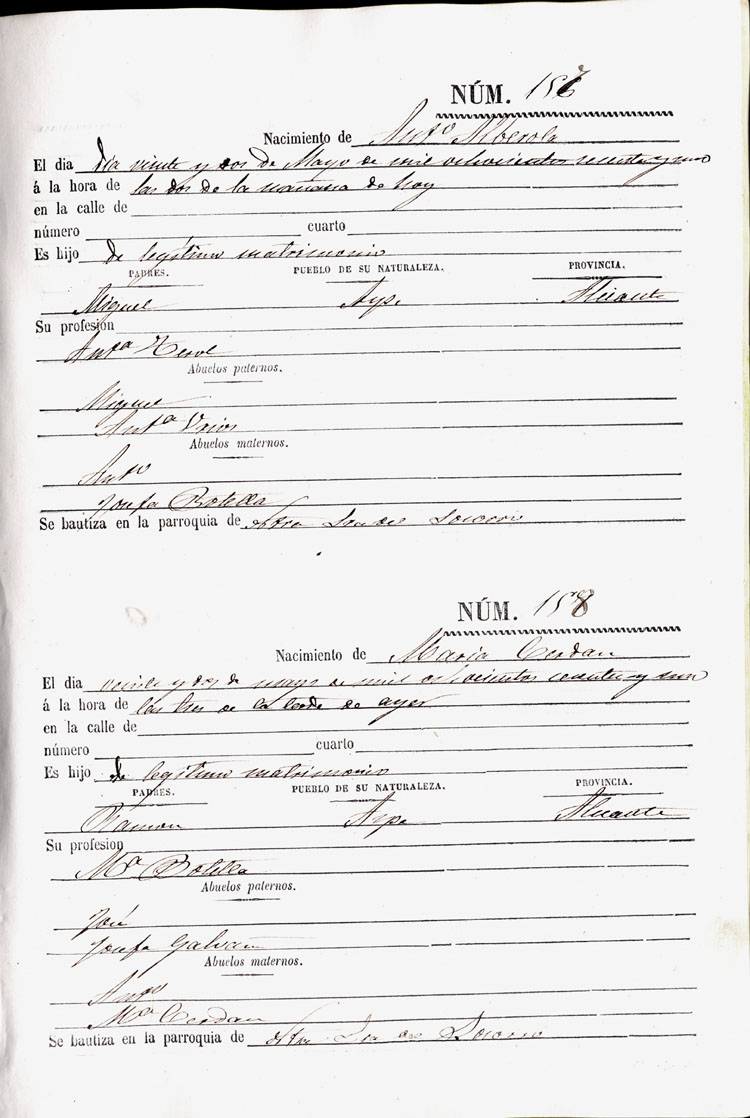 NÚM. 157
Nacimiento de Antº Alberola
El dia dia vinte y dos de Mayo de mil ochocientos sesenta y uno
á la hora de las dos de la mañana de hoy
en la calle de
número cuarto
Es hijo de legítimo matrimonio
PADRES. PUEBLO DE SU NATURALEZA. PROVINCIA.
Miguel Aspe Alicante
Su profesión
Antª Terol
Abuelos paternos.
Miguel
Antª Urios
Abuelos maternos.
Antº
Josefa Botella
Se bautiza en la parroquia de Ntra Sra del Socorro
NÚM. 158
Nacimiento de Maria Cerdan
El dia veinte y dos de mayo de mil ochocientos sesenta y uno
á la hora de las tres de la tarde de ayer
en la calle de
número cuarto
Es hijo de legítimo matrimonio
PADRES. PUEBLO DE SU NATURALEZA. PROVINCIA.
Ramon Aspe Alicante
Su profesion
Mª Botella
Abuelos paternos.
José
Josefa Galvañ
Abuelos maternos.
Antº
Mª Cerdan
Se bautiza en la parroquia de Ntra Sra del Socorro